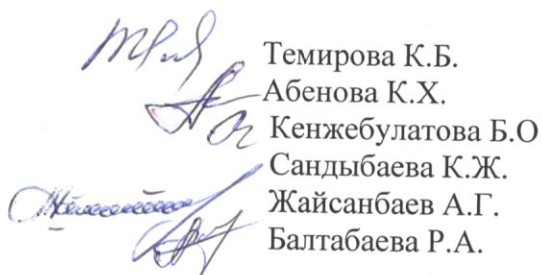 Темирова К.Б.
Абенова К.Х.
Кенжебулатова Б.О
Сандыбаева К.Ж.
Жайсанбаев А.Г.
Балтабаева Р.А.